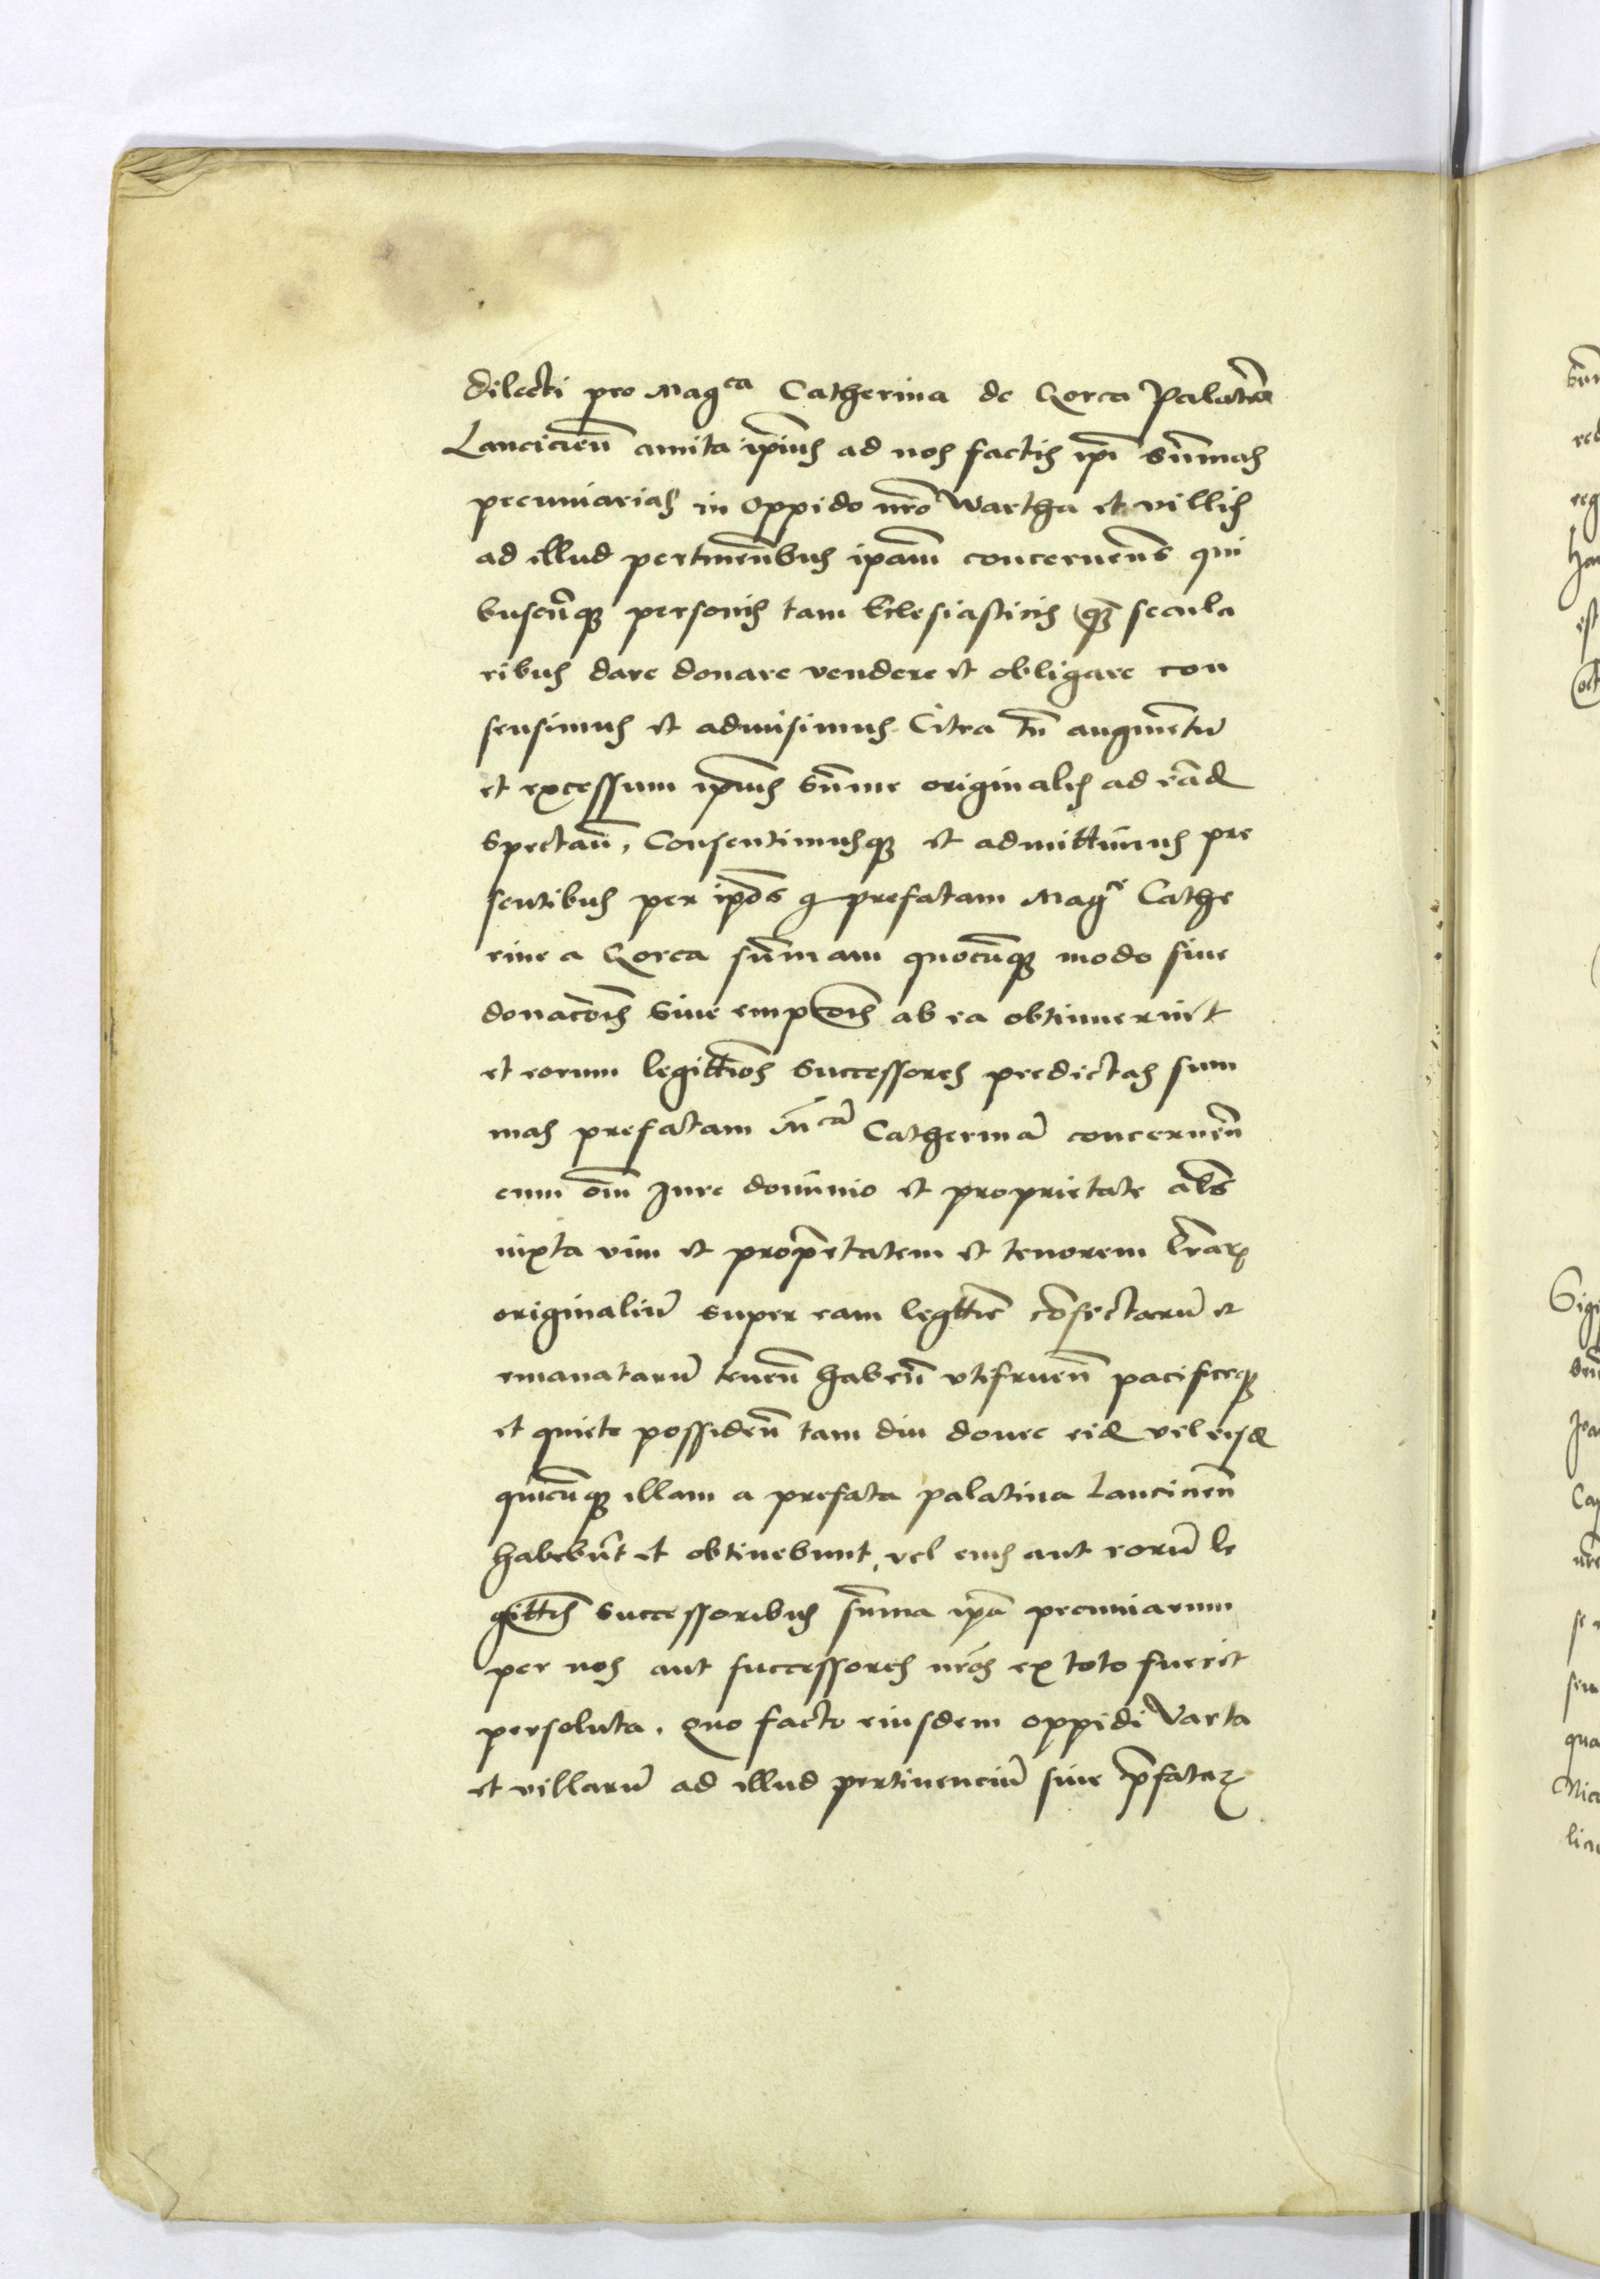 dilecti pro Mag^ca Catherina de Gorca Palat̄ea
Lancicien̄ amita ip̄ius ad nos factis ip̄i Sūmas
pecuniarias in oppido nr̄o Wartha et villis
ad illud pertinen̄bus ip̄am concernen̄s qui
buscūq̢ personis tam Ecclesiasticis q̄ȝ secula
ribus dare donare vendere et obligare con
sensimus et admisimus Citra tn̄ augmentū
et excessum ip̄ius Sūme originalis ad eād
Spectan̄, Consentimusq̢ et admittimus pre
sentibus per ip̄os prefatam Mag^ce Cathe
rine a Gorca sūmam quocūq̢ modo siue
donac̄ōis Siue empc̄ōis ab ea obtinuerint
et eorum legitt̄ōs Successores predictas sum
mas prefatam M̄^cā Catherinā concernen̄
cum om̄i Jure dominio et proprietate ab̄s
iuxta vim et prop̄etatem et tenorem l̄raꝝ
originaliū super eam legitt̄e cōfectarū et
emanatarū tenen̄ haben̄ vtifruen̄ pacificeq̢
et quiete possiden̄ tam diu donec eid̄ vel eisd̄
quicūq̢ illam a prefata palatina Lancicien̄
habebūt et obtinebunt, vel eius aut eorū le
gitt̄is Successoribus sūma ip̄a pecuniarum
per nos aut successores nr̄os ex toto fuerit
persoluta. Quo facto eiusdem oppidi Varta
et villarū ad illud pertinenciū siue p̄fataꝝ